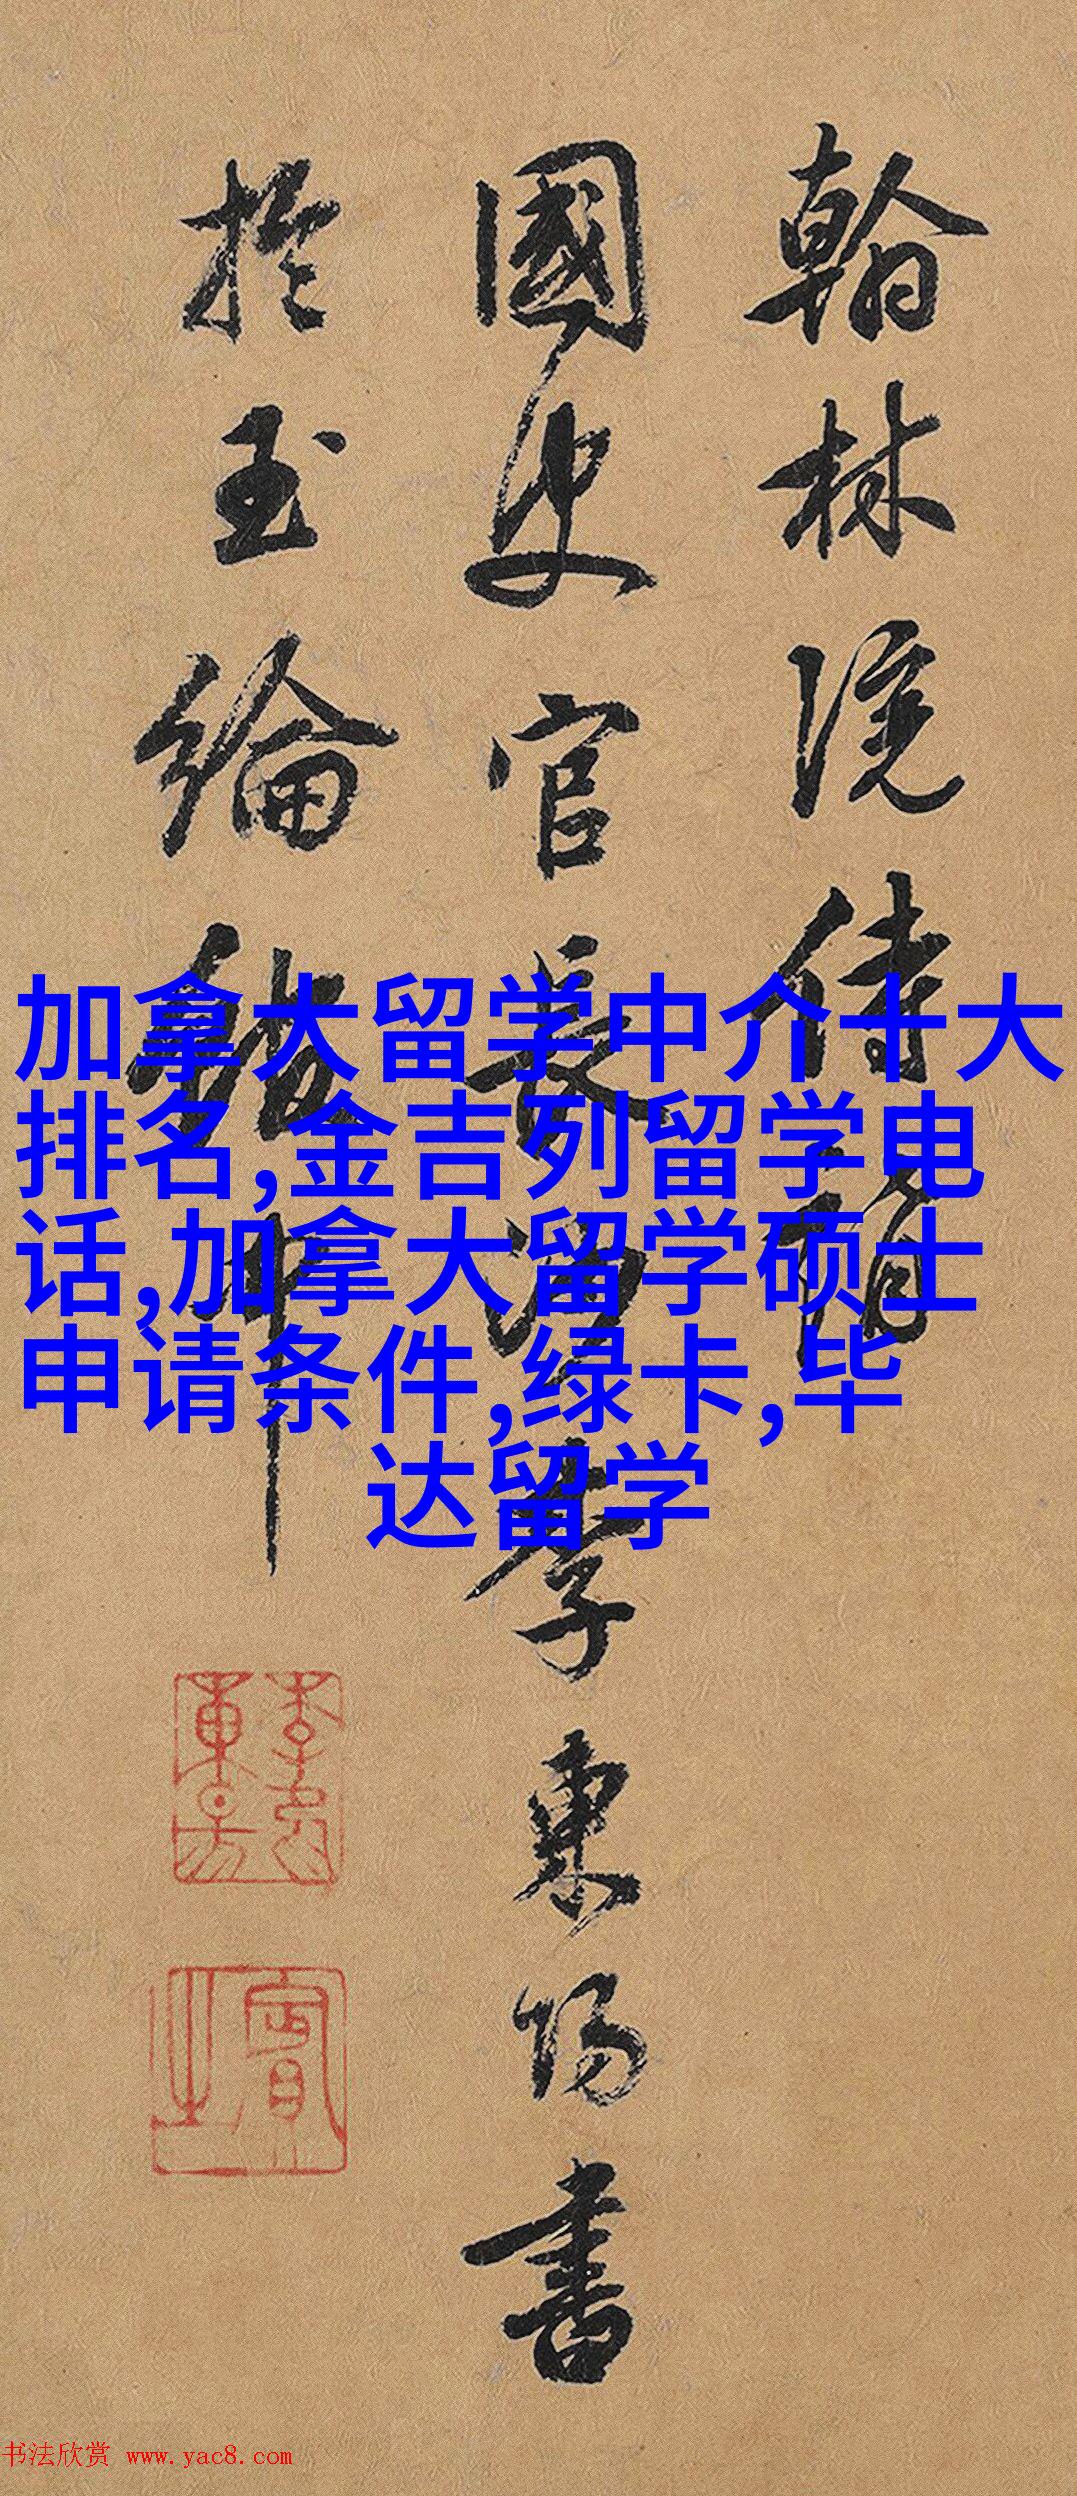 翰林院侍
國史官長沙李東陽書
於玉綸中
加拿大留学中介十大
排名,金吉列留学电
话,加拿大留学硕士
申请条件,绿卡,毕
达留学
賓之
书法欣赏 www.yac8.com